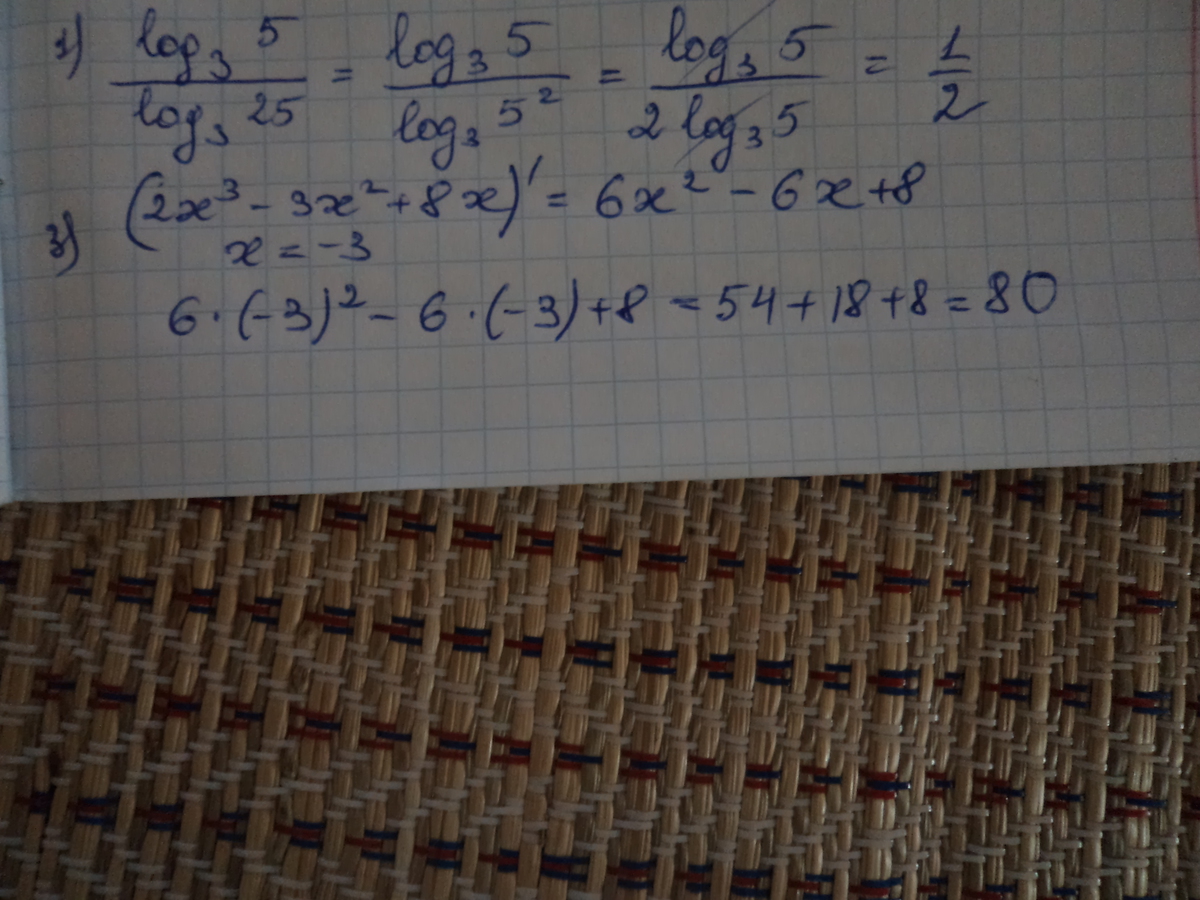 1) log₃ 5 / log₃ 25 = log₃ 5 / log₃ 5² = log₃ 5 / 2 log₃ 5 = 1/2
3) (2x³ - 3x² + 8x)' = 6x² - 6x + 8
x = -3
6 · (-3)² - 6 · (-3) + 8 = 54 + 18 + 8 = 80